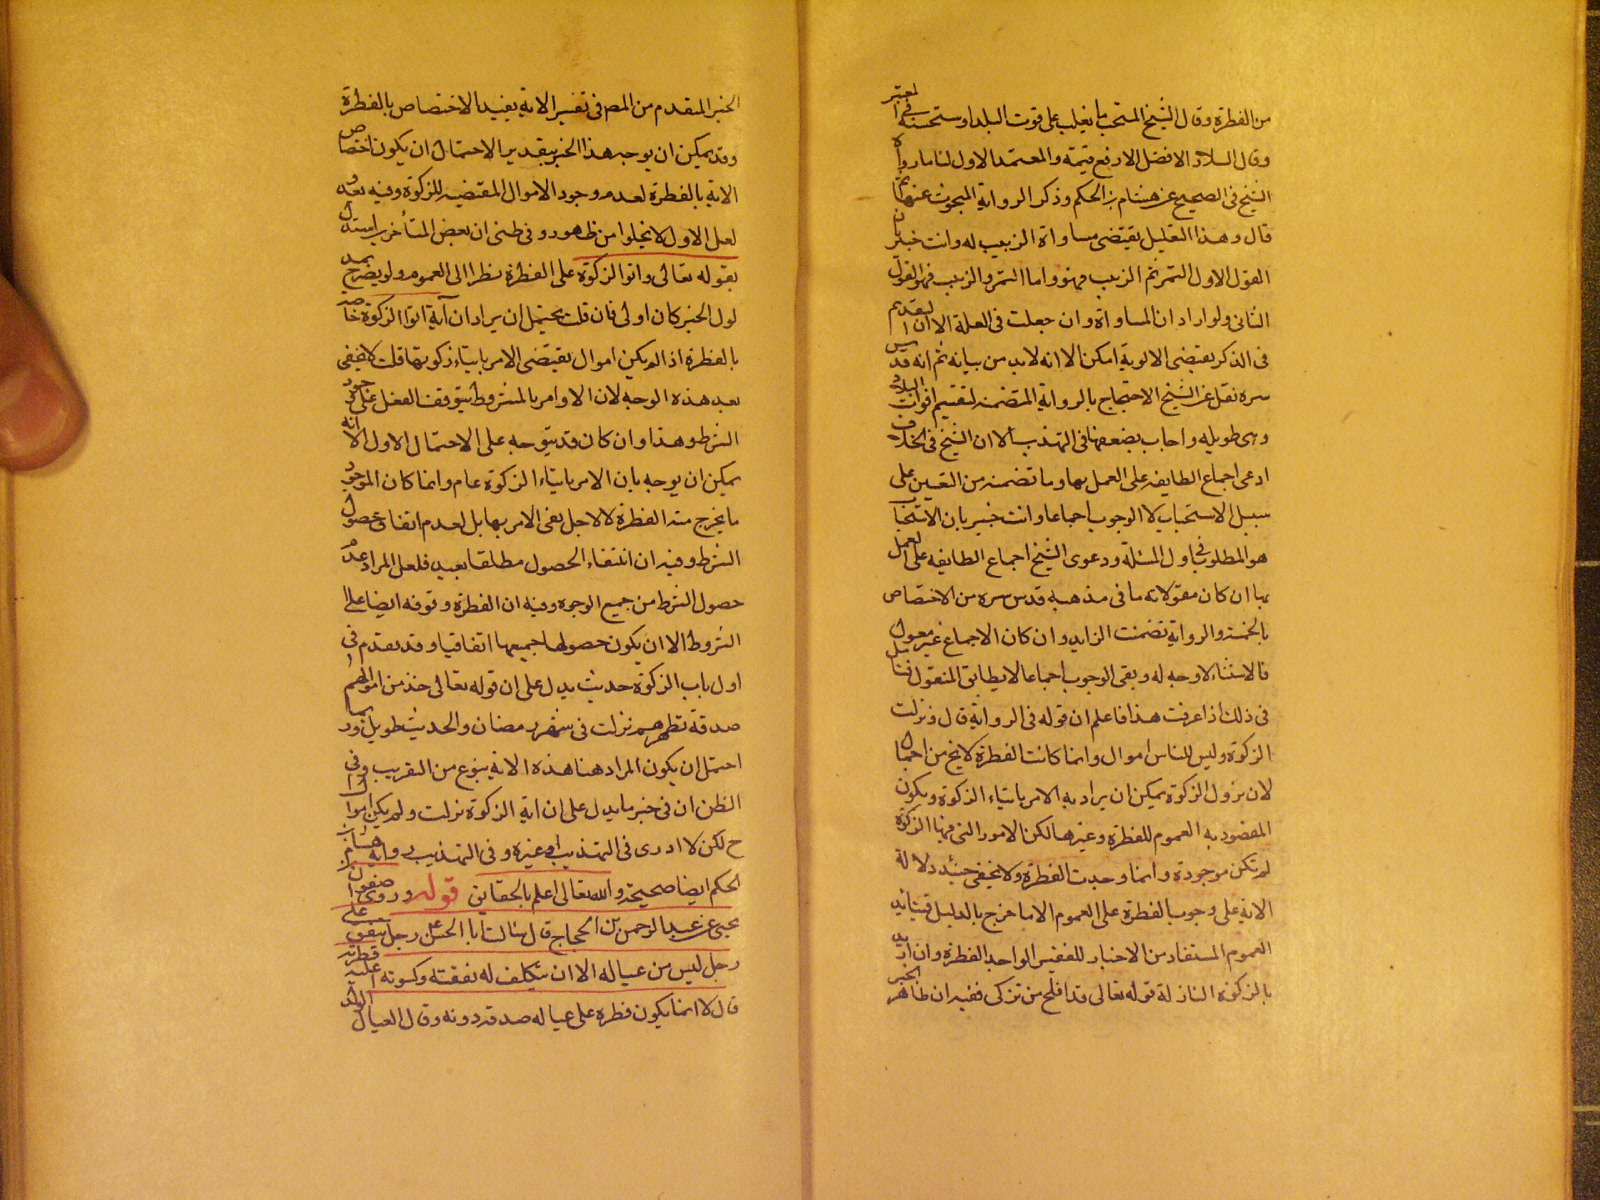 من الفطرة وقال الشيخ المستحب ما يغلب على قوت البلد واستحسنه في المعتبر
وقال السلار الافضل الارفع قيمته والمعتمد الاول لنا ما رواه
الشيخ في الصحيح عن هشام بن الحكم وذكر الرواية المبحوث عنها ثم
قال وهذا التعليل يقتضي مساواة الزبيب له وانت خبير بان
القول الاول التمر ثم الزبيب فهو واما التمر والزبيب فهو القول
الثاني ولو اراد ان المساواة وان جعلت في العلة الا ان التقديم
في الذكر يقتضي الالوية امكن الا انه لابد من بيانه ثم انه قدس
سره نقل عن الشيخ الاحتجاج بالرواية المتضمنة لتقسيم اقوات البلاد
وهى طويله واجاب بضعفها في التهذيب الا ان الشيخ في الخلاف
ادعى اجماع الطايفه على العمل بها وما تضمنه من التعيين على
سبيل الاستحباب لا الوجوب اجماعا وانت خبير بان الاستحباب
هو المطلوب في اول المسئلة ودعوى الشيخ اجماع الطايفه على العمل
بها ان كان مقولاته ما في مذهبه قدس سره من الاختصاص
بالخمسة والرواية تضمنت الزايد وان كان الاجماع غير معول
فالاستثناء لا وجه له وبقى الوجوب اجماعا لا يطابق المنقول فتأمل
في ذلك اذا عرفت هذا فاعلم ان قوله في الرواية قال ونزلت
الزكوة وليس للناس اموال وانما كانت الفطرة لا يخ من اجمال
لان نزول الزكوة يمكن ان يراد به الامر بايتاء الزكوة ويكون
المقصود به العموم للفطرة وغيرها لكن الامور التي فيها الزكوة
لم تكن موجودة وانما وجدت الفطرة ولا يخفى حينئذ دلالة
الاية على وجوب الفطرة على العموم الا ما خرج بالدليل فيتايد
العموم المستفاد من الاخبار للفقير الواجد الفطرة وان اريد
بالزكوة النازلة قوله تعالى قد افلح من تزكى ففيه ان ظاهر الخبر
الخبر المتقدم من المص في تفسير الاية يفيد الاختصاص بالفطرة
وقد يمكن ان يوجه هذا الخبر بتقدير الاحتمال ان يكون اختصاص
الاية بالفطرة لعدم وجود الاموال المقتضيه للزكوة وفيه بعد و
لعل الاول لا يخلوا من ظهور وفي ظني ان بعض المتأخرين استدل
بقوله تعالى واتوا الزكوة على الفطرة نظرا الى العموم ولو يضرح بمد
لول الخبر كان اولى فان قلت يحتمل ان يراد ان آية اتوا الزكوة خاصة
بالفطرة اذ لم يكن اموال يقتضى الامر بايتاء زكوتها قلت لا يخفى
بعد هذه الوجه لان الاوامر بالمشروط يتوقف الفعل على وجود
الشرط وهذا وان كان قد يتوجه على الاحتمال الاول الا انه
يمكن ان يوجه بان الامر بايتاء الزكوة عام وانما كان الموجود
ما يخرج منه الفطرة لا لاجل نفى الامر بها بل لعدم اتفاق حصول
الشرط وفيه ان انتفاء الحصول مطلقا بعيد فلعل المراد عدم
حصول الشرط من جميع الوجوه وفيه ان الفطرة وقوفه ايضا على
الشروط الا ان يكون حصولها جميعها اتفاقيا وقد تقدم في
اول باب الزكوة حديث يدل على ان قوله تعالى خذ من اموالهم
صدقة تطهرهم نزلت في شهر رمضان والحديث طويل وربما
احتمل ان يكون المراد هنا هذه الاية بنوع من التقريب وفي
الظن ان في خبر ما يدل على ان اية الزكوة نزلت ولم يكن اموال
ح لكن لا ادرى في التهذيب او غيره وفي التهذيب رواية هشام بن
الحكم ايضا صحيحة والله تعالى اعلم بالحقايق قوله وروى صفوان بن
يحيى عن عبد الرحمن بن الحجاج قال سالت ابا الحسن عن رجل ينفق على
رجل ليس من عياله الا ان يتكلف له نفقته وكسوته اعليه فطرته
قال لا انما يكون فطرة على عياله صدقه دونه وقال العيال الولد